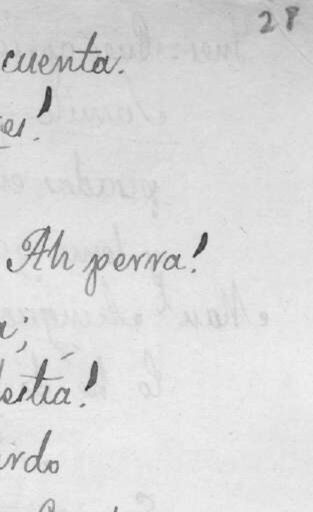 28
cuenta.
es!
Ah perra!
a;
estia!
ardo